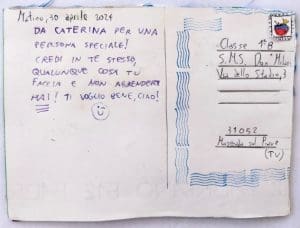 Matino, 30 aprile 2024
DA CATERINA PER UNA
PERSONA SPECIALE!
CREDI IN TE STESSO,
QUALUNQUE COSA TU
FACCIA E NON ARRENDERTI
MAI! TI VOGLIO BENE, CIAO!
Classe 1ªB
S.M.S. Don Milani
Via dello Stadio, 3
31052
Maserada sul Piave
(TV)